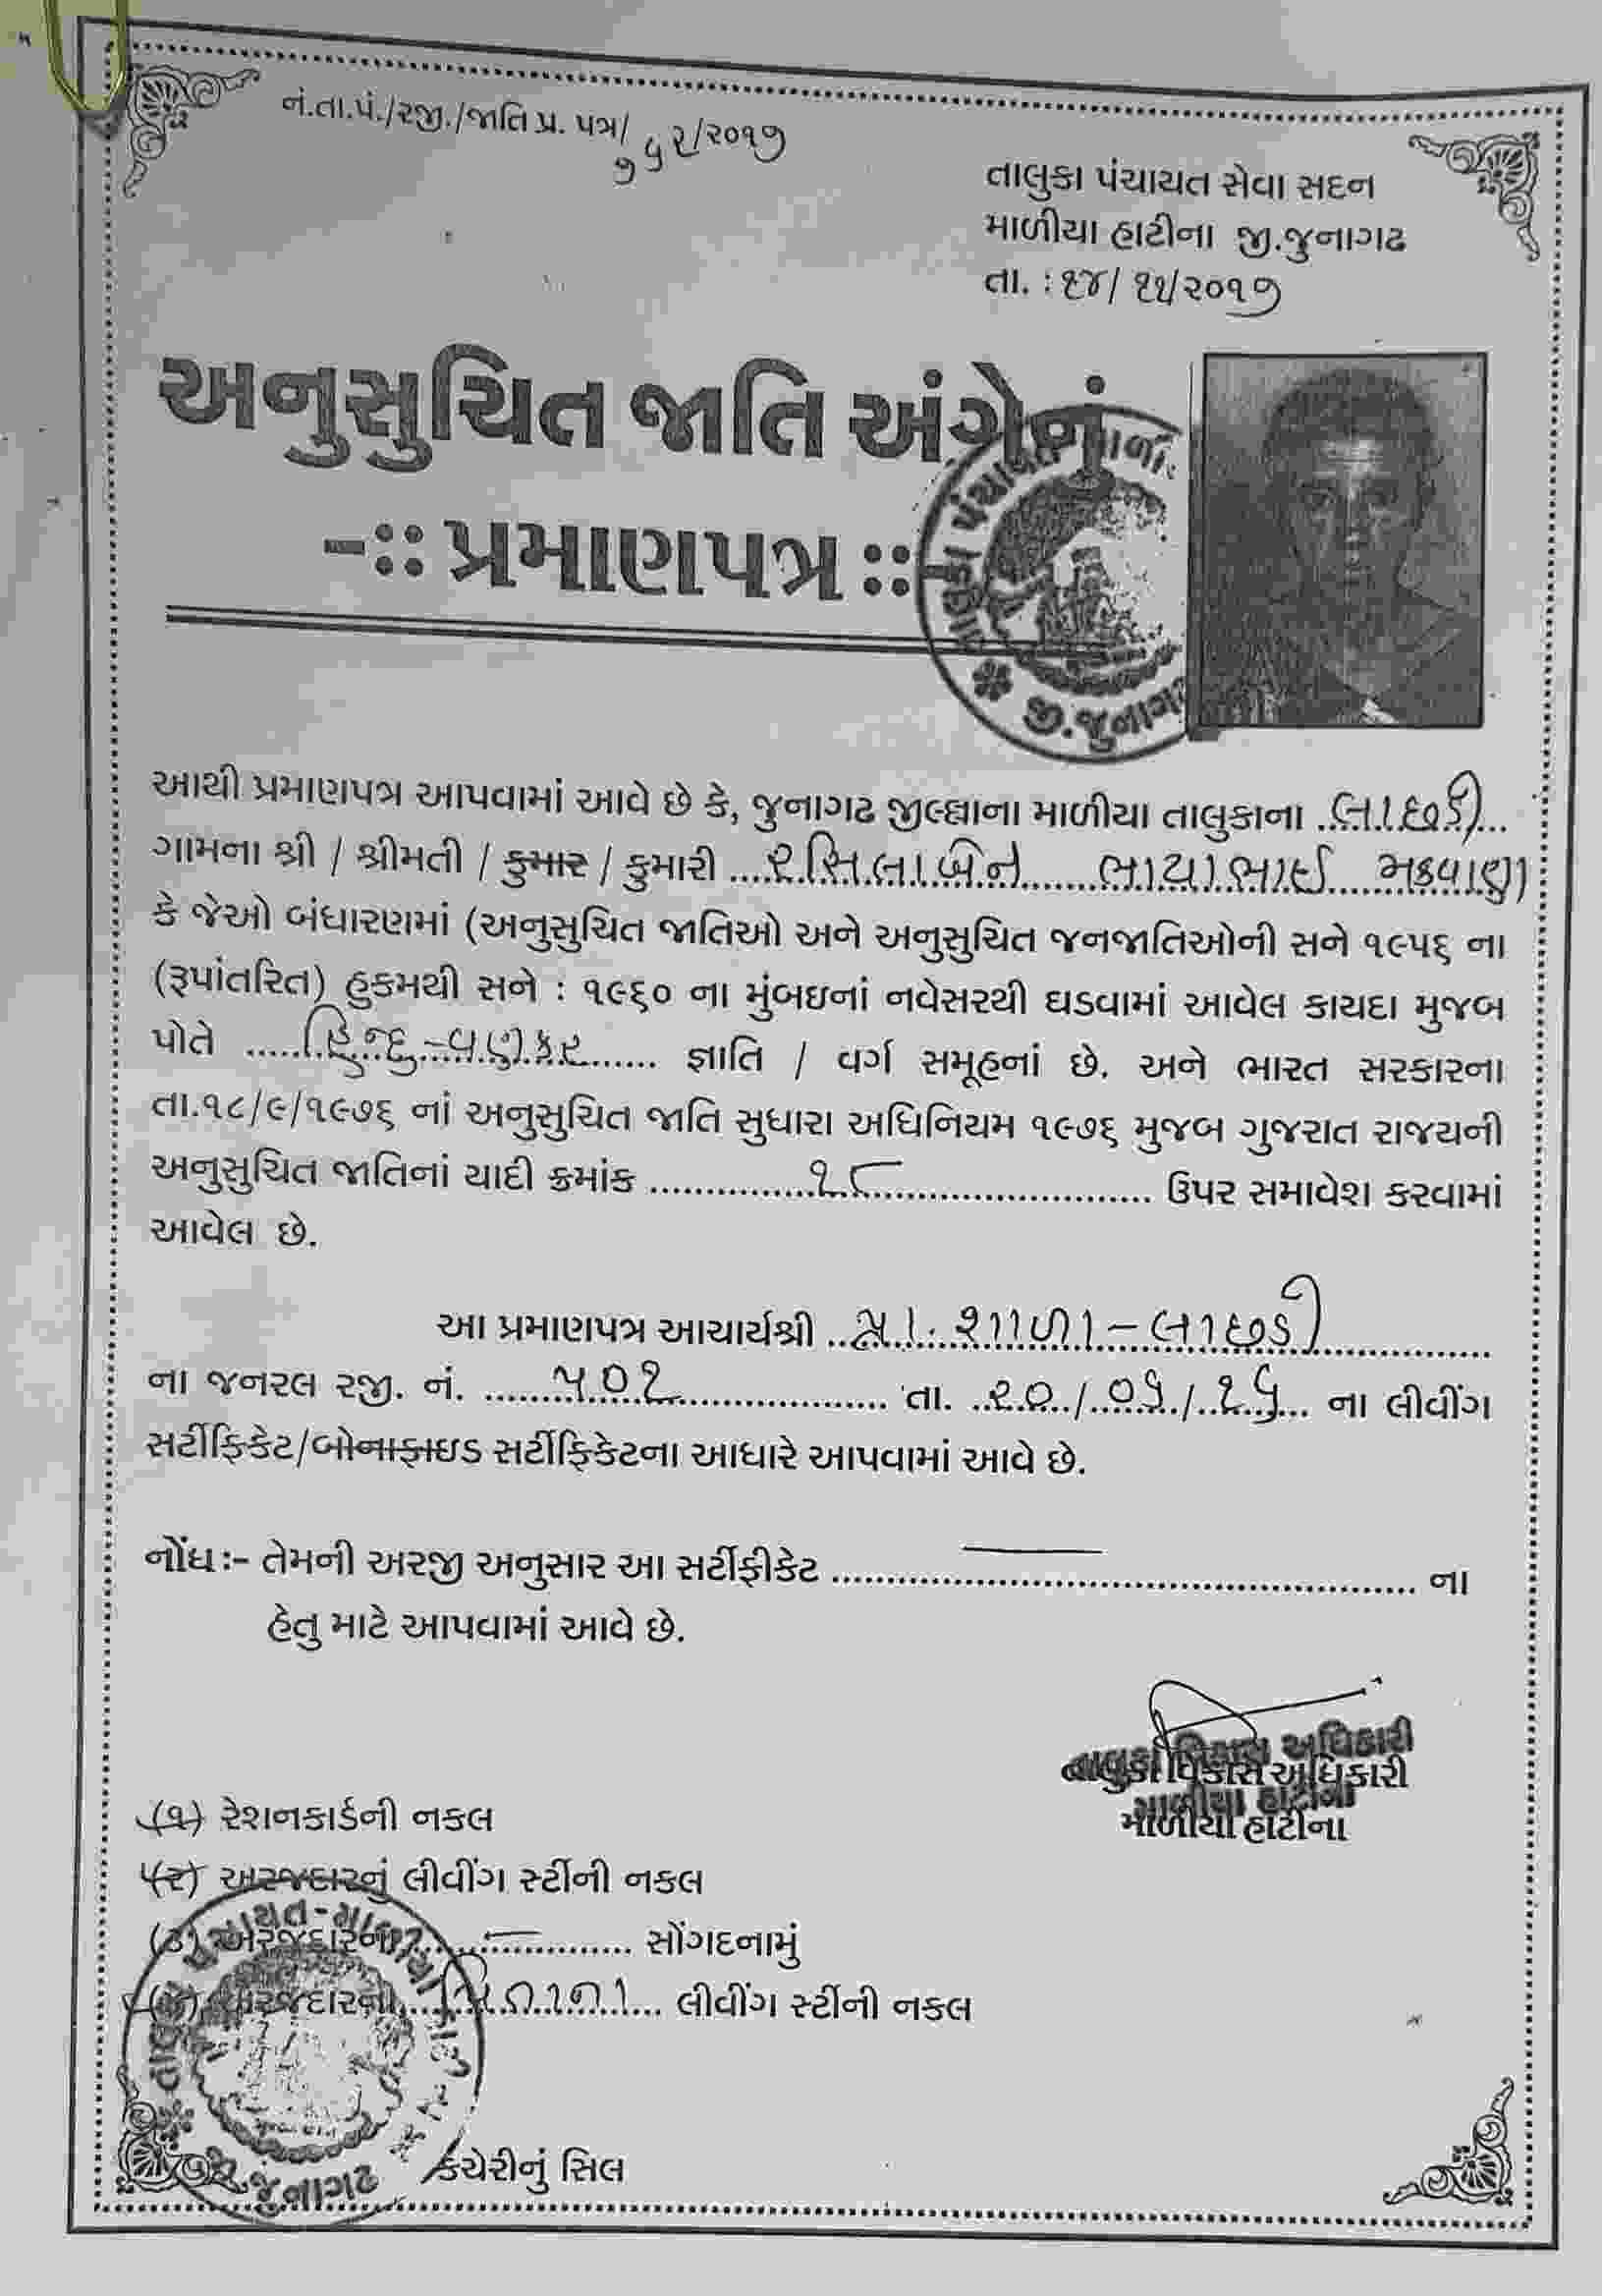 નં.તા.પં./રજી./જાતિ પ્ર. પત્ર/૭૫૨/૨૦૧૭
તાલુકા પંચાયત સેવા સદન
માળીયા હાટીના જી.જુનાગઢ
તા. : ૧૪/ ૧૧/૨૦૧૭
અનુસુચિત જાતિ અંગેનું
-:: પ્રમાણપત્ર ::-
આથી પ્રમાણપત્ર આપવામાં આવે છે કે, જુનાગઢ જીલ્લાના માળીયા તાલુકાના ..લાછડી...
ગામના શ્રી / શ્રીમતી / કુમાર / કુમારી ....રસિલાબેન ભાયાભાઈ મકવાણા
કે જેઓ બંધારણમાં (અનુસુચિત જાતિઓ અને અનુસુચિત જનજાતિઓની સને ૧૯૫૬ ના
(રૂપાંતરિત) હુકમથી સને : ૧૯૬૦ ના મુંબઇનાં નવેસરથી ઘડવામાં આવેલ કાયદા મુજબ
પોતે ......હિન્દુ-વણકર...... જ્ઞાતિ / વર્ગ સમૂહનાં છે. અને ભારત સરકારના
તા.૧૮/૯/૧૯૭૬ નાં અનુસુચિત જાતિ સુધારા અધિનિયમ ૧૯૭૬ મુજબ ગુજરાત રાજયની
અનુસુચિત જાતિનાં યાદી ક્રમાંક ..............૧૮......................... ઉપર સમાવેશ કરવામાં
આવેલ છે.
આ પ્રમાણપત્ર આચાર્યશ્રી ..પ્રા. શાળા - લાછડી..............
ના જનરલ રજી. નં. .......૫૦૧.................. તા. ..૨૦../..૦૬../..૧૬... ના લીવીંગ
સર્ટીફિકેટ/બોનાફાઇડ સર્ટીફિકેટના આધારે આપવામાં આવે છે.
નોંધઃ- તેમની અરજી અનુસાર આ સર્ટીફીકેટ .................................................... ના
હેતુ માટે આપવામાં આવે છે.
તાલુકા વિકાસ અધિકારી
તાલુકા વિકાસ અધિકારી
માળીયા હાટીના
માળીયા હાટીના
(૧) રેશનકાર્ડની નકલ
(૨) અરજદારનું લીવીંગ સ્ર્ટીની નકલ
(૩) અરજદારના .................... સોંગદનામું
(૪) અરજદારની ....પિતાના... લીવીંગ સ્ર્ટીની નકલ
કચેરીનું સિલ